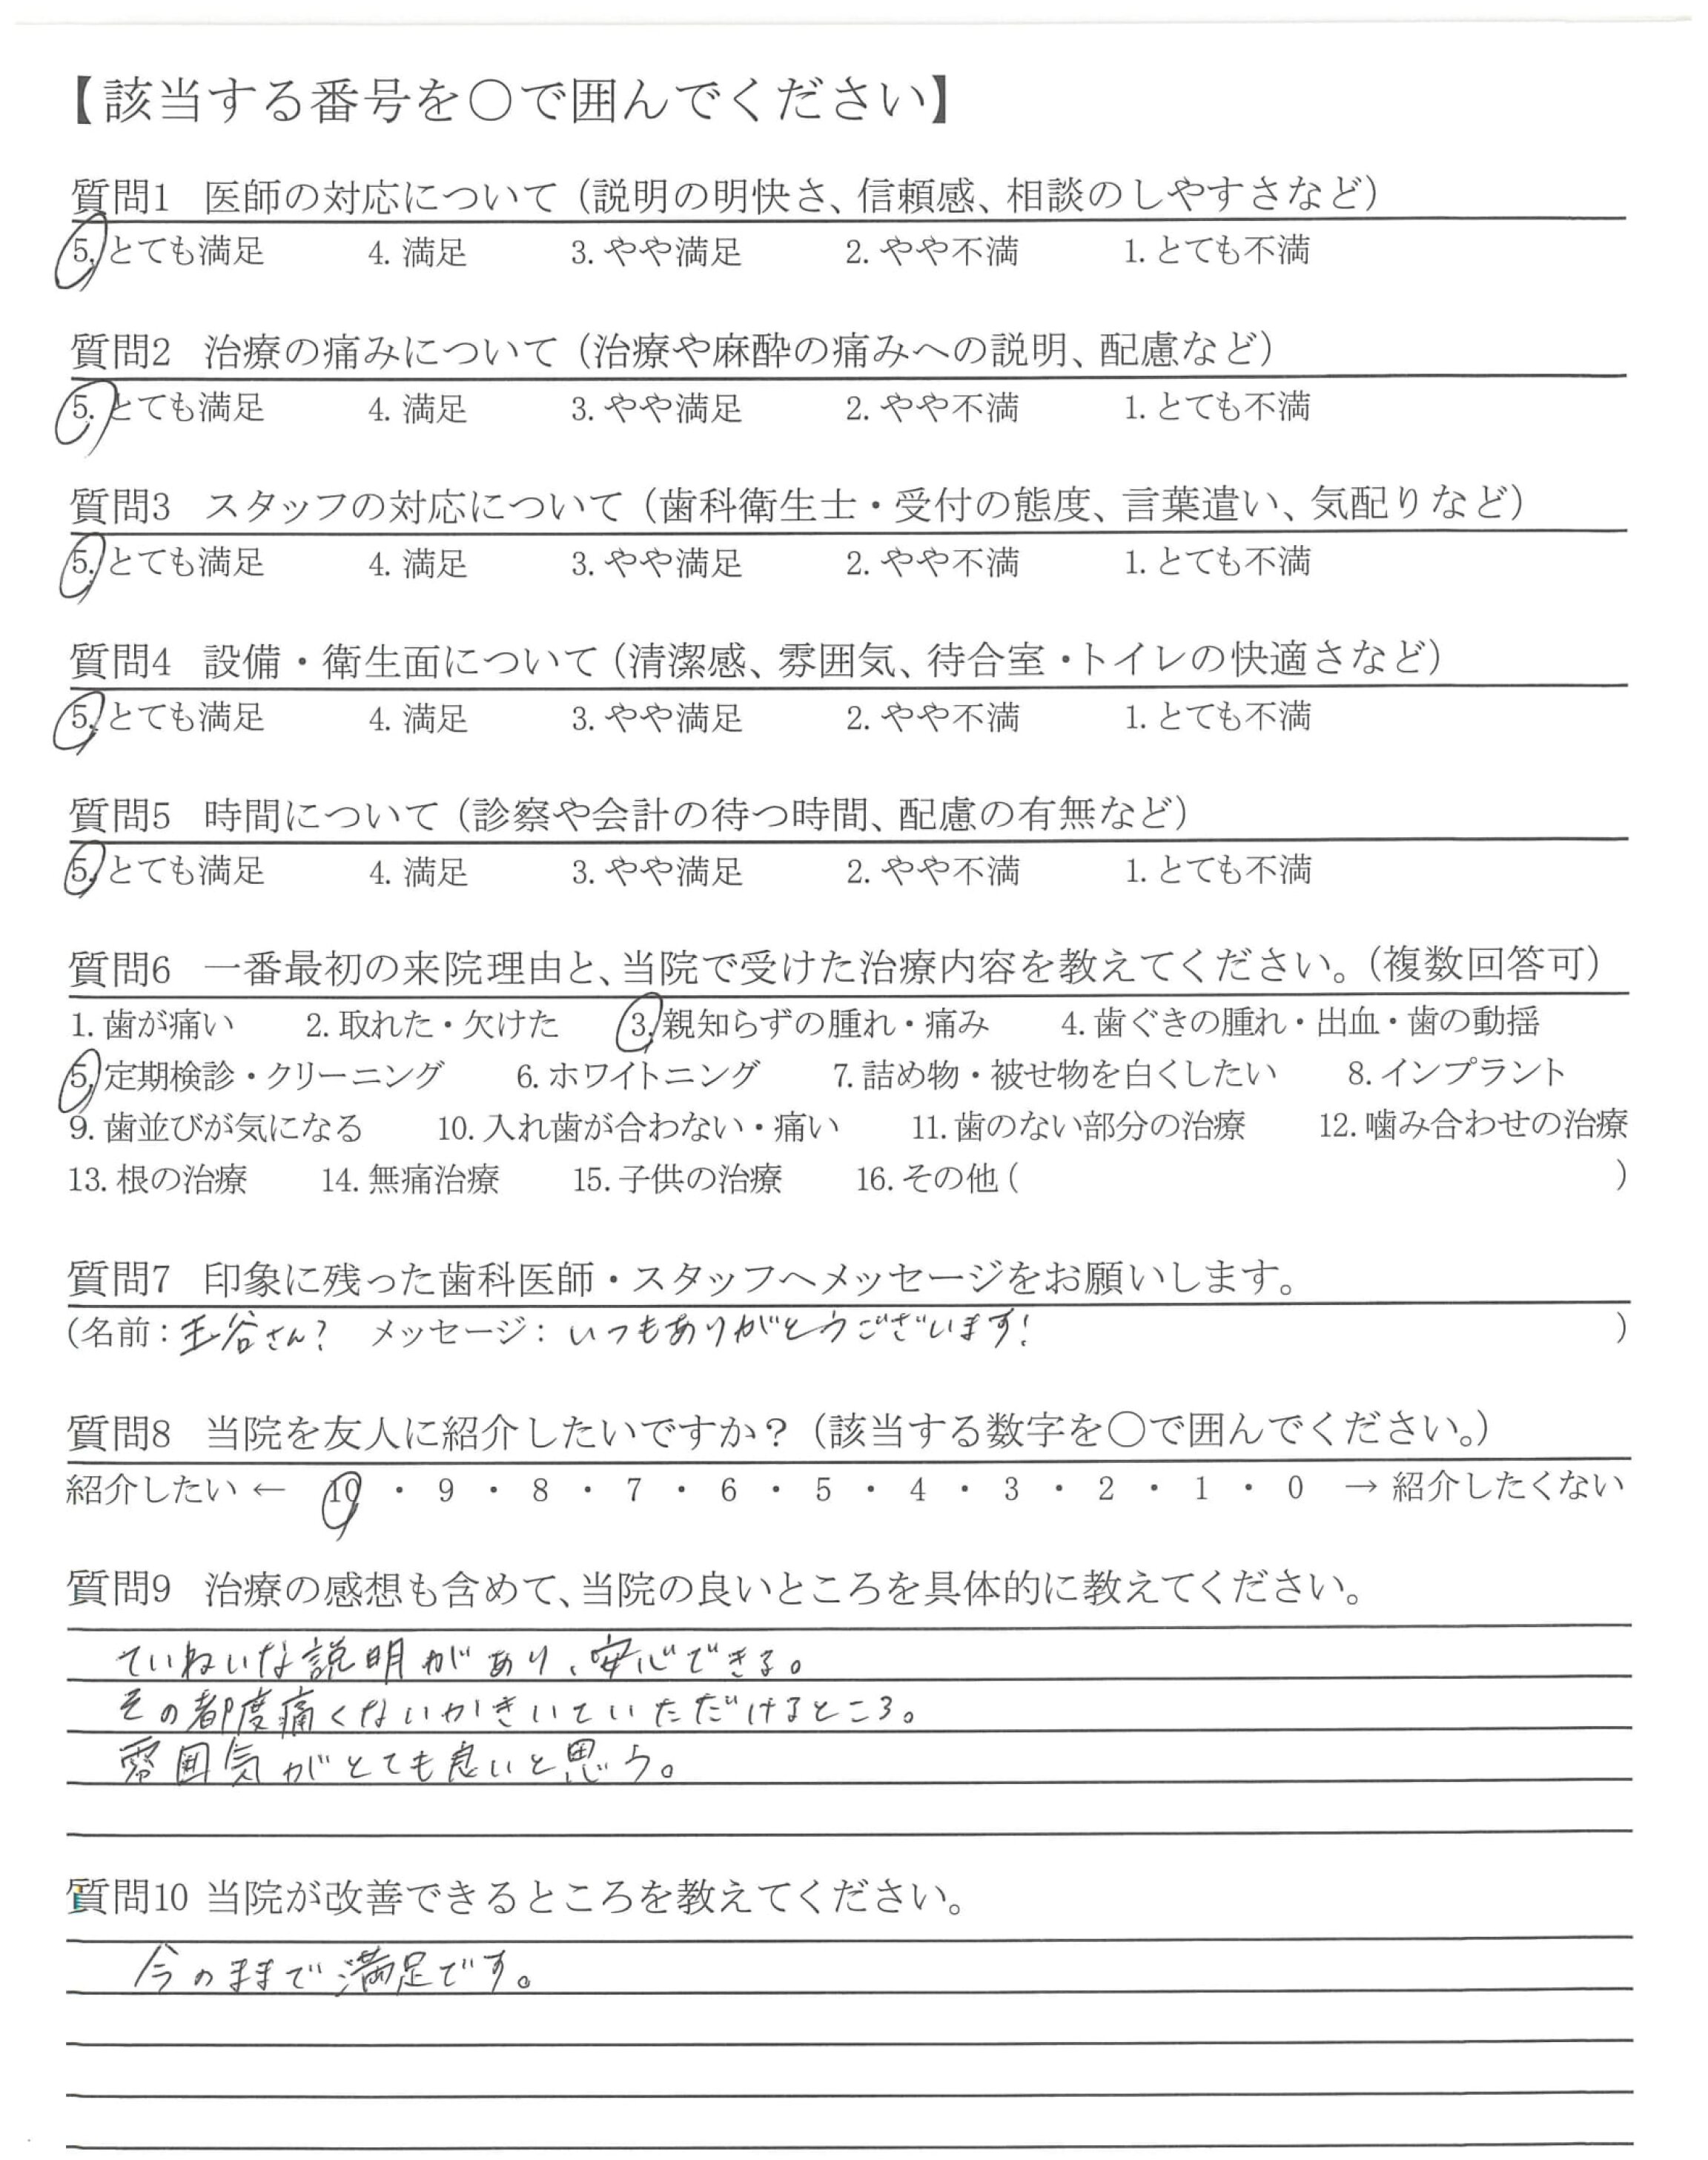 【該当する番号を○で囲んでください】
質問1 医師の対応について（説明の明快さ、信頼感、相談のしやすさなど）
5. とても満足 4. 満足 3. やや満足 2. やや不満 1. とても不満
質問2 治療の痛みについて（治療や麻酔の痛みへの説明、配慮など）
5. とても満足 4. 満足 3. やや満足 2. やや不満 1. とても不満
質問3 スタッフの対応について（歯科衛生士・受付の態度、言葉遣い、気配りなど）
5. とても満足 4. 満足 3. やや満足 2. やや不満 1. とても不満
質問4 設備・衛生面について（清潔感、雰囲気、待合室・トイレの快適さなど）
5. とても満足 4. 満足 3. やや満足 2. やや不満 1. とても不満
質問5 時間について（診察や会計の待つ時間、配慮の有無など）
5. とても満足 4. 満足 3. やや満足 2. やや不満 1. とても不満
質問6 一番最初の来院理由と、当院で受けた治療内容を教えてください。（複数回答可）
1. 歯が痛い 2. 取れた・欠けた 3. 親知らずの腫れ・痛み 4. 歯ぐきの腫れ・出血・歯の動揺
5. 定期検診・クリーニング 6. ホワイトニング 7. 詰め物・被せ物を白くしたい 8. インプラント
9. 歯並びが気になる 10. 入れ歯が合わない・痛い 11. 歯のない部分の治療 12. 噛み合わせの治療
13. 根の治療 14. 無痛治療 15. 子供の治療 16. その他（ ）
質問7 印象に残った歯科医師・スタッフへメッセージをお願いします。
（名前：玉谷さん? メッセージ：いつもありがとうございます! ）
質問8 当院を友人に紹介したいですか？（該当する数字を○で囲んでください。）
紹介したい ← 10 ・ 9 ・ 8 ・ 7 ・ 6 ・ 5 ・ 4 ・ 3 ・ 2 ・ 1 ・ 0 → 紹介したくない
質問9 治療の感想も含めて、当院の良いところを具体的に教えてください。
ていねいな説明があり、安心できる。
その都度痛くないかきいていただけるところ。
雰囲気がとても良いと思う。
質問10 当院が改善できるところを教えてください。
今のままで満足です。